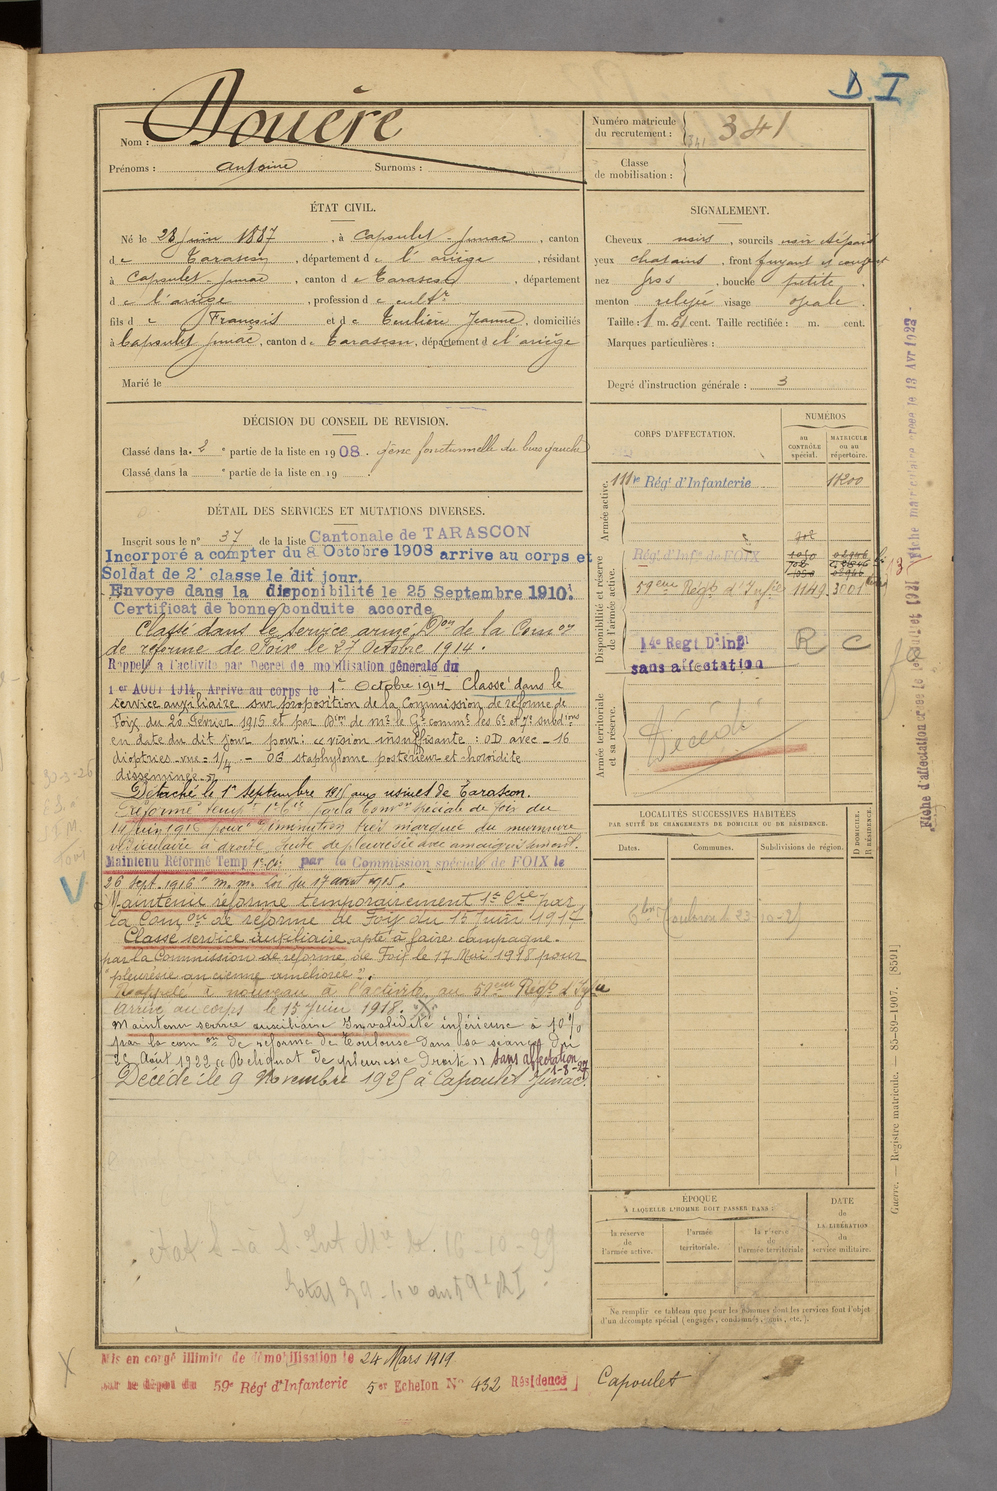 D. I
Nom : Douère
Prénoms : Antoine Surnoms :
Numéro matricule du recrutement : 341
Classe de mobilisation :
ÉTAT CIVIL.
Né le 28 juin 1887, à Capoulet-Junac, canton
de Tarascon, département de l'ariège, résidant
à Capoulet-Junac, canton de Tarascon, département
de l'ariège, profession de cultr
fils de François et de Teulière Jeanne, domiciliés
à Capoulet Junac, canton de Tarascon, département de l'ariège
Marié le
SIGNALEMENT.
Cheveux noirs, sourcils noir
yeux chatains, front fuyant et
nez gros, bouche petite,
menton relevé visage ovale.
Taille : 1 m. 61 cent. Taille rectifiée : m. cent.
Marques particulières :
Degré d'instruction générale : 3
DÉCISION DU CONSEIL DE REVISION.
Classé dans la 2e partie de la liste en 1908. gêne fonctionnelle du bras gauche
Classé dans la e partie de la liste en 19 .
DÉTAIL DES SERVICES ET MUTATIONS DIVERSES.
Inscrit sous le n° 37 de la liste Cantonale de TARASCON
Incorporé a compter du 8 Octobre 1908 arrive au corps et
Soldat de 2e classe le dit jour.
Envoye dans la disponibilité le 25 Septembre 1910.
Certificat de bonne conduite accorde
Classé dans le service armé, Don de la Comon
de réforme de Foix le 27 Octobre 1914.
Rappelé a l'activité par Decret de mobilisation génerale du
1er AOUT 1914. Arrive au corps le 1er Octobre 1914 Classé dans le
service auxiliaire sur proposition de la Commission de réforme de
Foix du 20 février 1915 et par Don de Mr le Gl commt les 6e et 7e subdions
en date du dit jour pour : "vision insuffisante : OD avec - 16
dioptries vue = 1/4 - OG staphylome postérieur et choroïdite
disseminée"
Détaché le 1er septembre 1915 aux usines de Tarascon.
Réformé tempre 1e Cie par la Comon spéciale de Foix du
14 juin 1916 pour "diminution très marquée du murmure
vésiculaire à droite, suite de pleurésie avec amaigrissement.
Maintenu Réformé Temp 1e Cie par la Commission spéciale de FOIX le
26 Sept. 1916 m. m. loi du 17 août 1915.
Maintenu réformé temporairement 1e Cie par
la Comon de réforme de Foix du 1er Juin 1917
Classé service auxiliaire apte à faire campagne
par la Commission de réforme de Foix le 17 Mai 1918 pour
"pleurésie ancienne améliorée".
Rappelé à nouveau à l'activité au 59eme Regt d'Infie
Arrivé au corps le 15 juin 1918.
Maintenu service auxiliaire Invalidité inférieure à 10%
par la comon de réforme de Toulouse dans sa séance du
25 Août 1922 "Reliquat de pleurésie droite" sans affectation
1-8-27
Décédé le 9 Novembre 1925 à Capoulet Junac.
CORPS D'AFFECTATION.
NUMÉROS
au CONTRÔLE spécial.
MATRICULE ou au répertoire.
Armée active.
111e Régt d'Infanterie 11200
Disponibilité et réserve de l'armée active.
Régt d'Infie de FOIX
59eme Régt d'Infie 1149 3001
14e Regt D'Infie R C
sans affectation
Armée territoriale et sa réserve.
Décédé
LOCALITÉS SUCCESSIVES HABITÉES
PAR SUITE DE CHANGEMENTS DE DOMICILE OU DE RÉSIDENCE.
Dates. Communes. Subdivisions de région. D DOMICILE. R RÉSIDENCE.
ÉPOQUE
À LAQUELLE L'HOMME DOIT PASSER DANS :
la réserve de l'armée active.
l'armée territoriale.
la réserve de l'armée territoriale
DATE de LA LIBÉRATION du service militaire.
Ne remplir ce tableau que pour les hommes dont les services font l'objet
d'un décompte spécial (engagés, condamnés, omis, etc.).
Guerre. — Registre matricule. — 85-89-1907. [8591]
Fiche matriculaire créée le 13 Avr 1923
Mis en congé illimité de démobilisation le 24 Mars 1919
par le dépot du 59e Régt d'Infanterie 5er Echelon N° 432 Résidence Capoulet